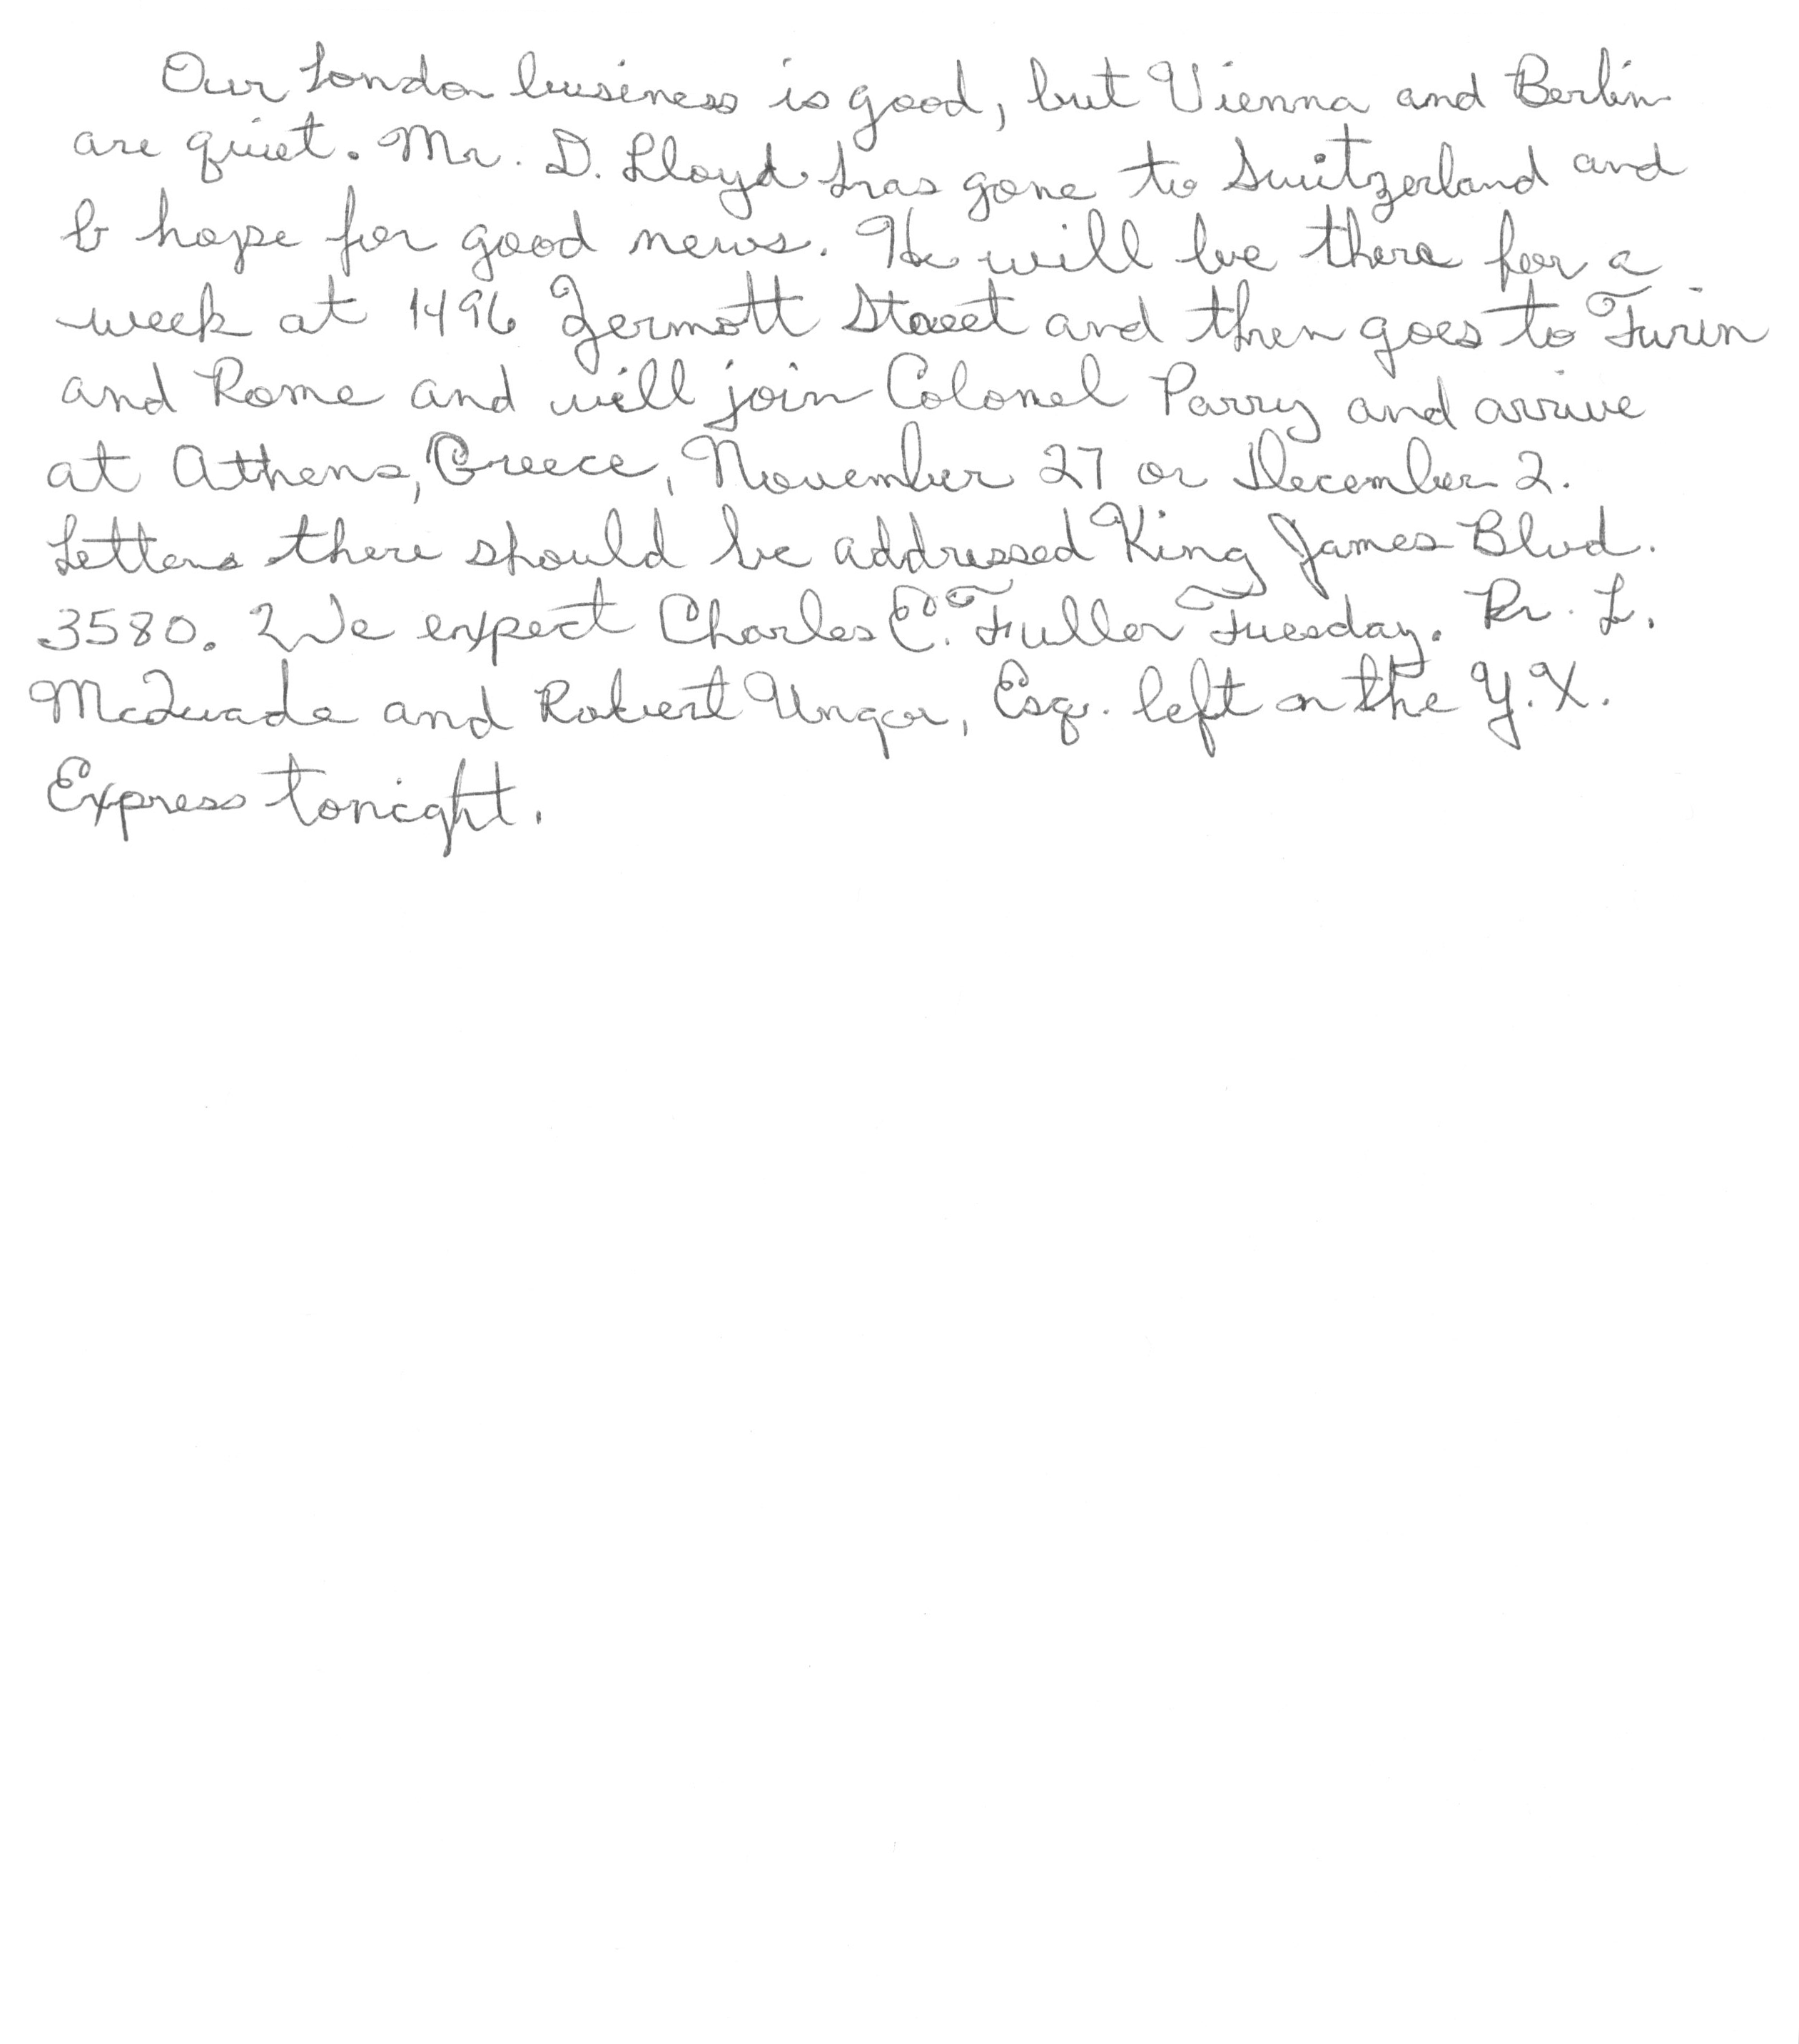 Our London business is good, but Vienna and Berlin
are quiet. Mr. D. Lloyd has gone to Switzerland and
hope for good news. He will be there for a
week at 1496 Zermott Street and then goes to Turin
and Rome and will join Colonel Parry and arrive
at Athens, Greece, November 27 or December 2.
Letters there should be addressed King James Blvd.
3580. We expect Charles E. Fuller Tuesday. Dr. L.
McQuade and Robert Unger, Esq. left on the Y.X.
Express tonight.